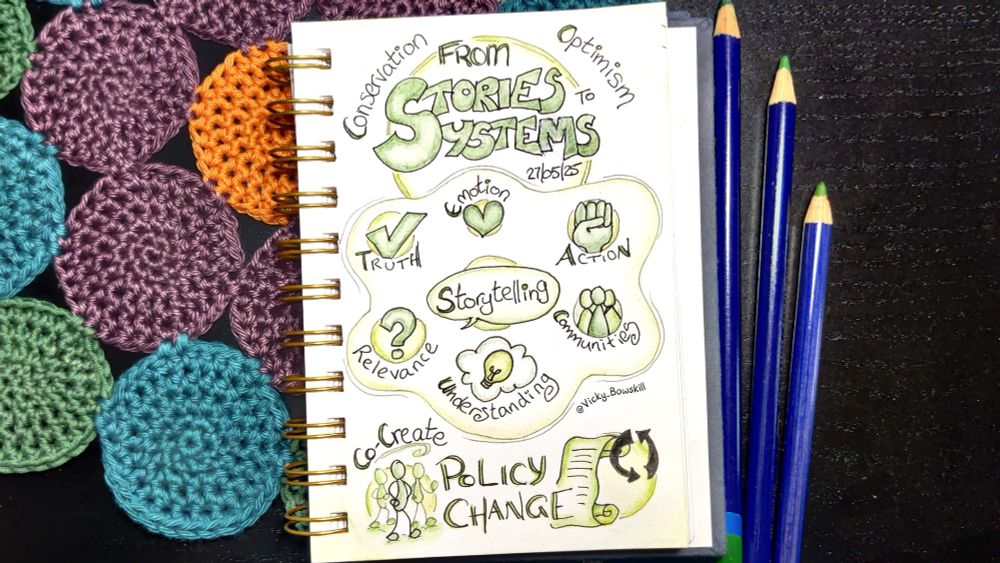 Conservation
Optimism
FROM
STORIES
TO
SYSTEMS
27/05/25
Emotion
TRUTH
ACTION
Storytelling
Communities
?
Relevance
Understanding
@Vicky_Bowskill
Co-Create
POLICY
CHANGE